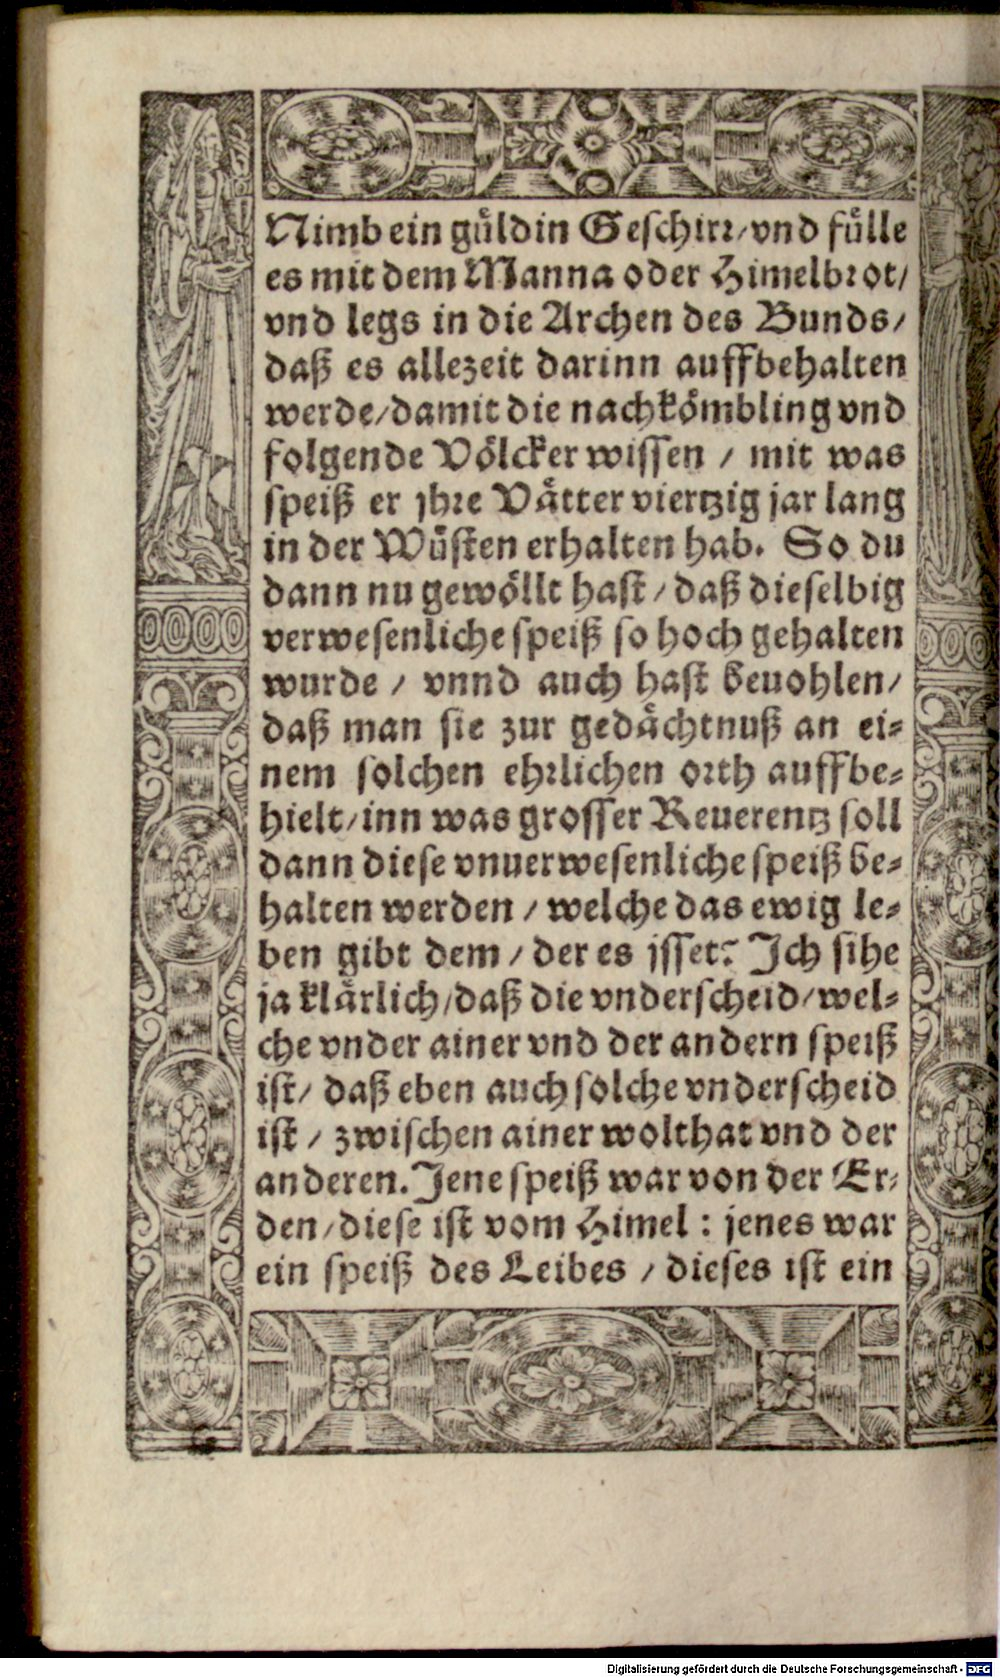 Nimb ein güldin Geschirr/vnd fülle
es mit dem Manna oder Himelbrot/
vnd legs in die Archen des Bunds/
daß es allezeit darinn auffbehalten
werde/damit die nachkömbling vnd
folgende Völcker wissen / mit was
speiß er jhre Vätter viertzig jar lang
in der Wüsten erhalten hab. So du
dann nu gewöllt hast / daß dieselbig
verwesenliche speiß so hoch gehalten
wurde / vnnd auch hast beuohlen/
daß man sie zur gedächtnuß an ei-
nem solchen ehrlichen orth auffbe-
hielt/inn was grosser Reuerentz soll
dann diese vnuerwesenliche speiß be-
halten werden / welche das ewig le-
ben gibt dem / der es jsset? Ich sihe
ja klärlich/daß die vnderscheid/wel-
che vnder ainer vnd der andern speiß
ist/ daß eben auch solche vnderscheid
ist / zwischen ainer wolthat vnd der
anderen. Jene speiß war von der Er-
den/diese ist vom Himel : jenes war
ein speiß des Leibes / dieses ist ein
Digitalisierung gefördert durch die Deutsche Forschungsgemeinschaft - DFG